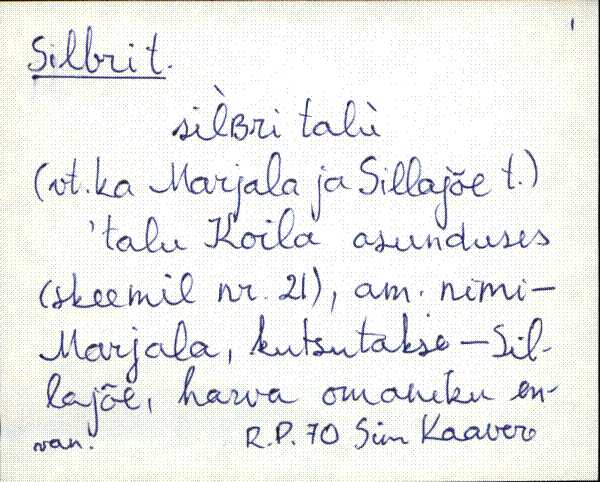 1
Silbri t.
sìlʙri talù
(vt. ka Marjala ja Sillajõe t.)
'talu Koila asunduses
(skeemil nr. 21), am. nimi –
Marjala, kutsutakse – Sil-
lajõe, harva omaniku en-
van.
R.P. 70 Siim Kaavero